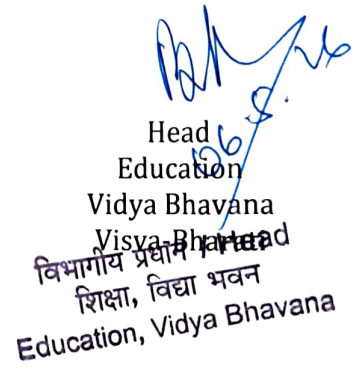 06.8.26
Head
Education
Vidya Bhavana
Visva-Bharati
विभागीय प्रधान / Head
शिक्षा, विद्या भवन
Education, Vidya Bhavana